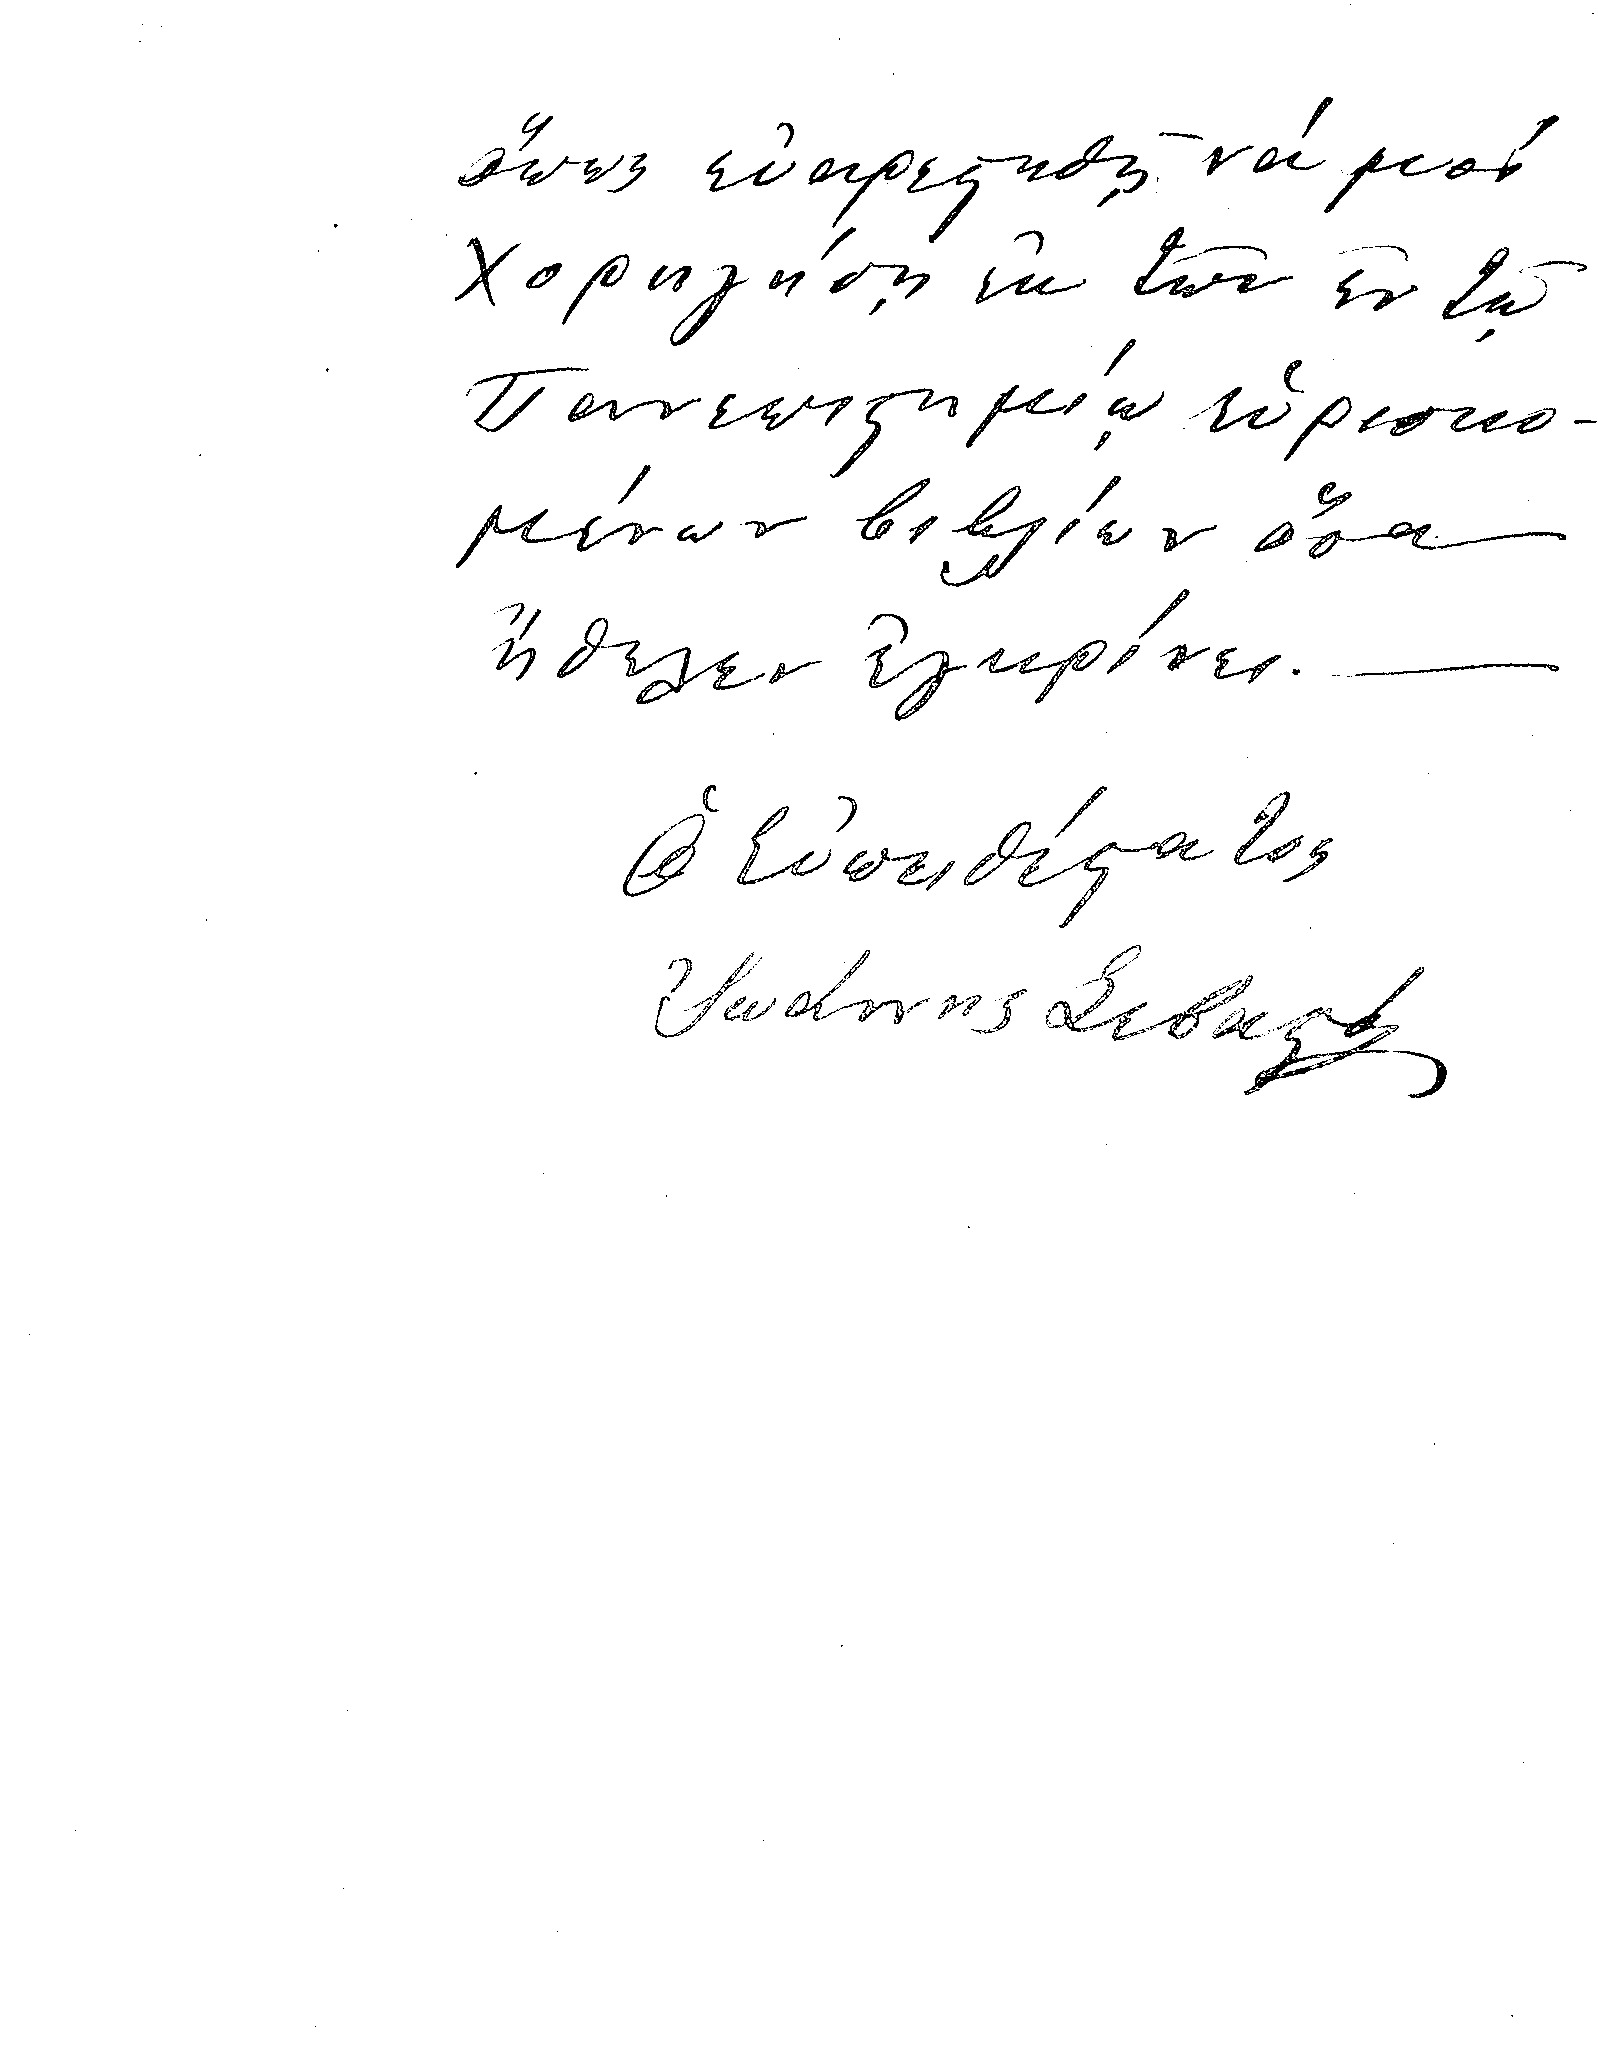 ὅπως εὐαρεστηθῇ νά μοί
χορηγήσῃ ἐκ τῶν ἐν τῷ
Πανεπιστημείῳ εὑρισκο-
μένων βιβλίων ὅσα
ἤθελεν ἐγκρίνει.
Ὁ εὐπειθέστατος
Ἰωάννης Σεβαστό